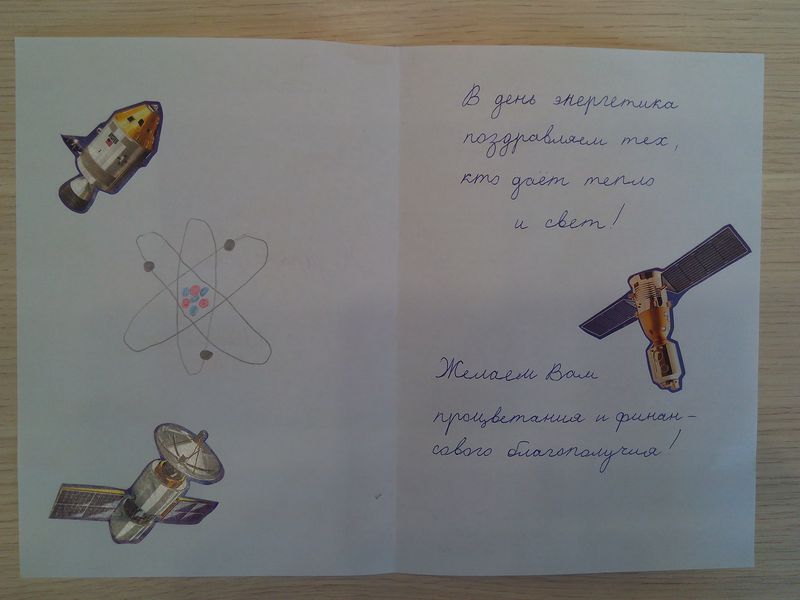 В день энергетика
поздравляем тех,
кто даёт тепло
и свет!
Желаем Вам
процветания и финан-
сового благополучия!